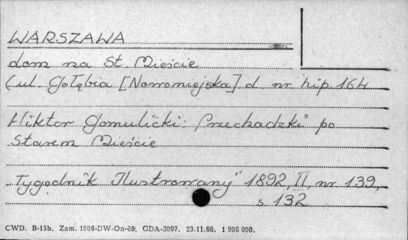 WARSZAWA
dom na St. Mieście
(ul. Gołębia [Nowomiejska] d nr hip. 164
Wiktor Gomulicki: Przechadzki po
Starem Mieście
"Tygodnik Ilustrowany" 1892, II, nr 139,
s 132
CWD. B-15b. Zam. 1098-DW-On-69, GDA-3097. 23.11.66. 1 906 000.